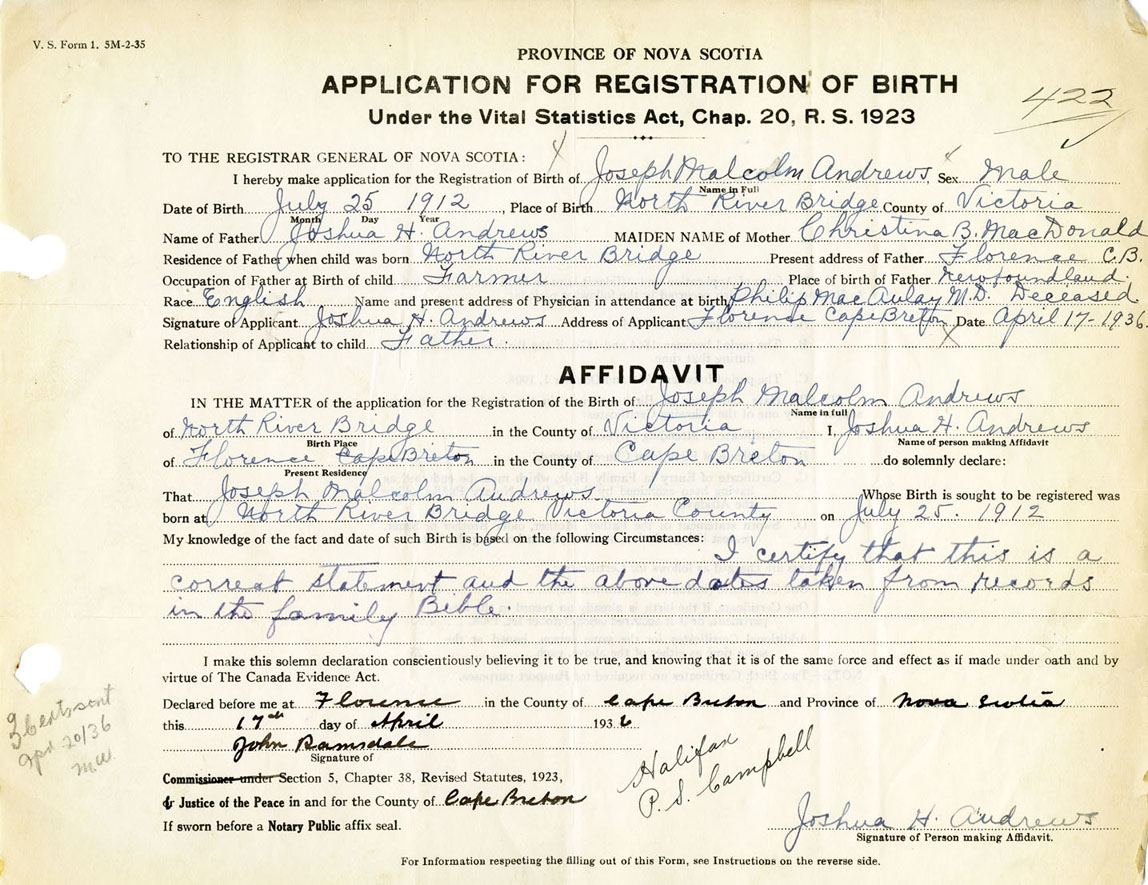 V. S. Form 1. 5M-2-35
PROVINCE OF NOVA SCOTIA
APPLICATION FOR REGISTRATION OF BIRTH
Under the Vital Statistics Act, Chap. 20, R. S. 1923
422
TO THE REGISTRAR GENERAL OF NOVA SCOTIA:
I hereby make application for the Registration of Birth of Joseph Malcolm Andrews Sex Male
Name in Full
Date of Birth July 25 1912, Place of Birth North River Bridge County of Victoria
Month Day Year
Name of Father Joshua H. Andrews MAIDEN NAME of Mother Christina B. MacDonald
Residence of Father when child was born North River Bridge Present address of Father Florence C.B.
Occupation of Father at Birth of child Farmer Place of birth of Father Newfoundland.
Race English Name and present address of Physician in attendance at birth Philip MacAulay M.D. Deceased
Signature of Applicant Joshua H. Andrews Address of Applicant Florence Cape Breton Date April 17-1936.
Relationship of Applicant to child Father.
AFFIDAVIT
IN THE MATTER of the application for the Registration of the Birth of Joseph Malcolm Andrews
Name in full
of North River Bridge in the County of Victoria I, Joshua H. Andrews
Birth Place Name of person making Affidavit
of Florence Cape Breton in the County of Cape Breton do solemnly declare:
Present Residence
That Joseph Malcolm Andrews Whose Birth is sought to be registered was
born at North River Bridge Victoria County on July 25. 1912
My knowledge of the fact and date of such Birth is based on the following Circumstances:
I certify that this is a
correct statement and the above dates taken from records
in the family Bible.
I make this solemn declaration conscientiously believing it to be true, and knowing that it is of the same force and effect as if made under oath and by
virtue of The Canada Evidence Act.
Declared before me at Florence in the County of Cape Breton and Province of Nova Scotia
this 17th day of April 1936
John Ramsdale
Signature of
Commissioner under Section 5, Chapter 38, Revised Statutes, 1923,
or Justice of the Peace in and for the County of Cape Breton
If sworn before a Notary Public affix seal.
Halifax
P. S. Campbell
Joshua H. Andrews
Signature of Person making Affidavit.
For Information respecting the filling out of this Form, see Instructions on the reverse side.
sent
20/36
M.W.